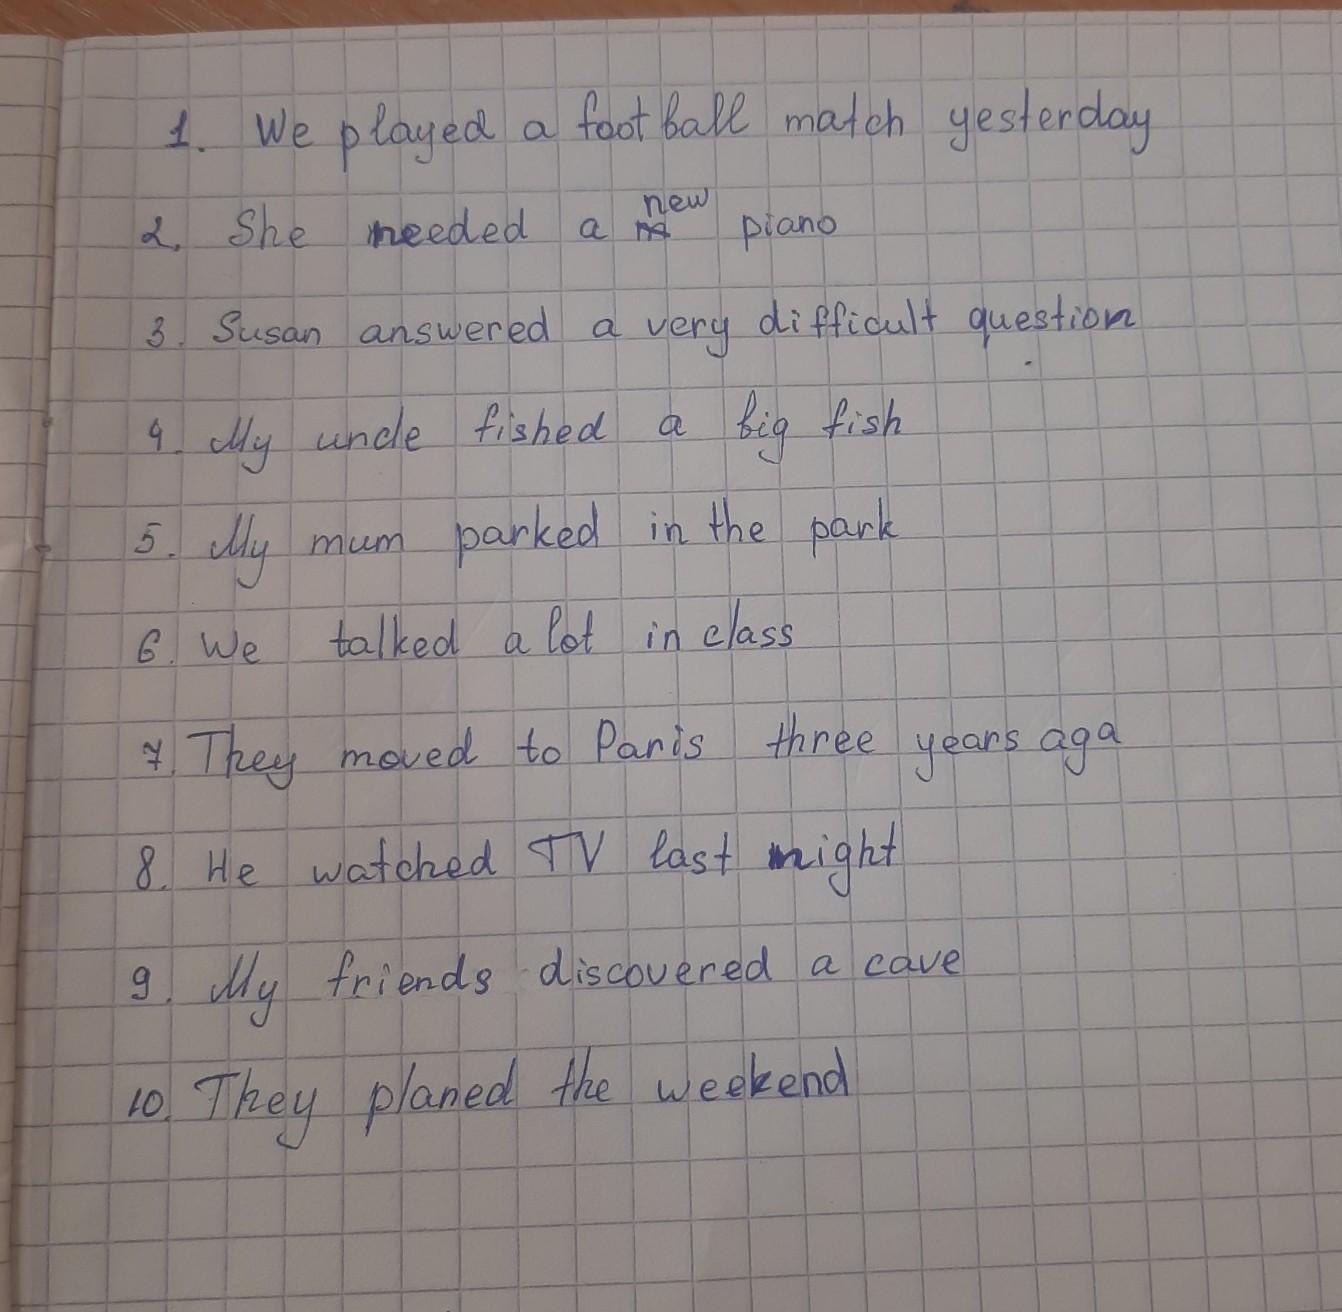 1. We played a football match yesterday
2. She needed a new piano
3. Susan answered a very difficult question
4. My uncle fished a big fish
5. My mum parked in the park
6. We talked a lot in class
7. They moved to Paris three years aga
8. He watched TV last night
9. My friends discovered a cave
10. They planed the weekend